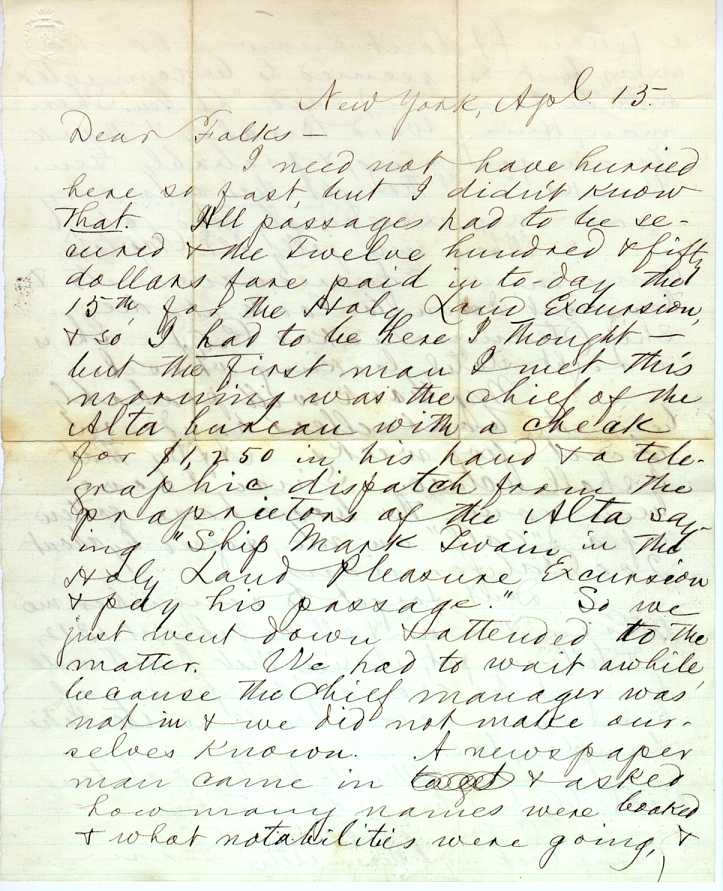 New York, Apl 15.
Dear Folks —
I need not have hurried
here so fast, but I didn't know
that. All passages had to be se-
cured & the Twelve hundred & fifty
dollars fare paid in to-day the
15th, for the Holy Land Excursion,
& so I had to be here I thought —
but the first man I met this
morning was the chief of the
Alta bureau with a check
for $1,250 in his hand & a tele-
graphic dispatch from the
proprietors of the Alta say-
ing "Ship Mark Twain in the
Holy Land Pleasure Excursion
& pay his passage." So we
just went down & attended to the
matter. We had to wait awhile,
because the chief manager was
not in & we did not make our-
selves known. A newspaper
man came in & asked
how many names were booked
& what notabilities were going, &